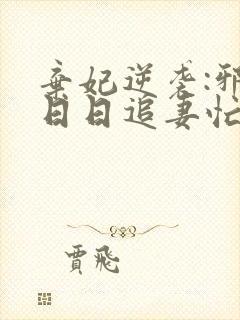 棄妃逆袭:邪
日日追妻忙
賈飛